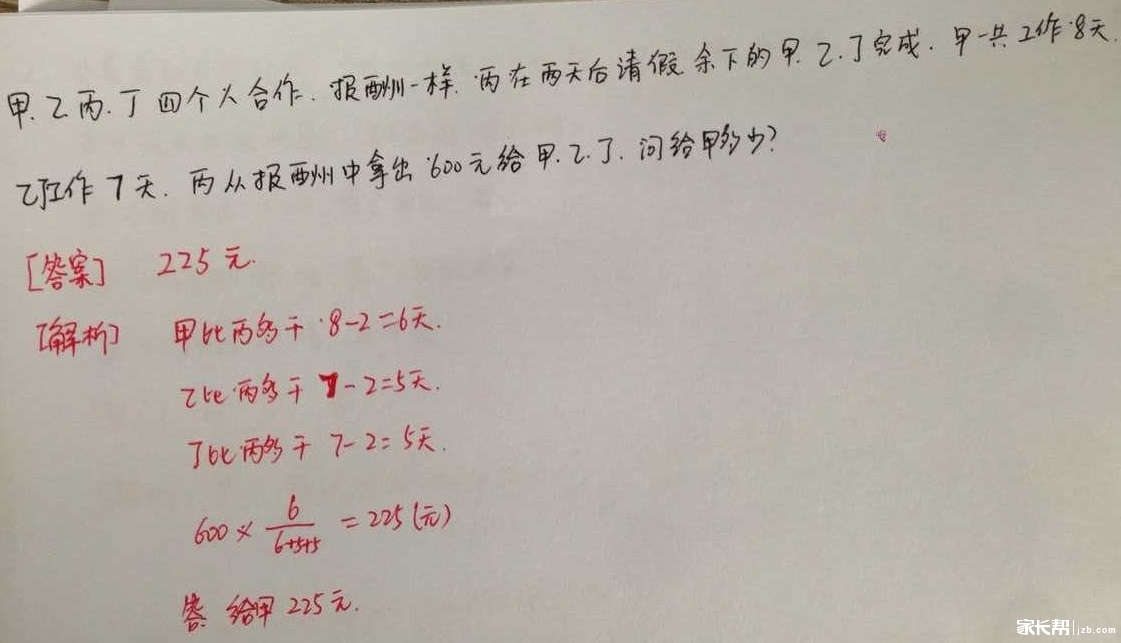 甲.乙.丙.丁四个人合作.报酬一样.丙在两天后请假余下的甲.乙.丁完成.甲一共工作8天.
乙丁工作7天.丙从报酬中拿出600元给甲.乙.丁.问给甲多少?
[答案] 225元.
[解析] 甲比丙多干8-2=6天.
乙比丙多干7-2=5天.
丁比丙多干7-2=5天.
600×6/(6+5+5)=225(元)
答.给甲225元.
家长帮 jzb.com